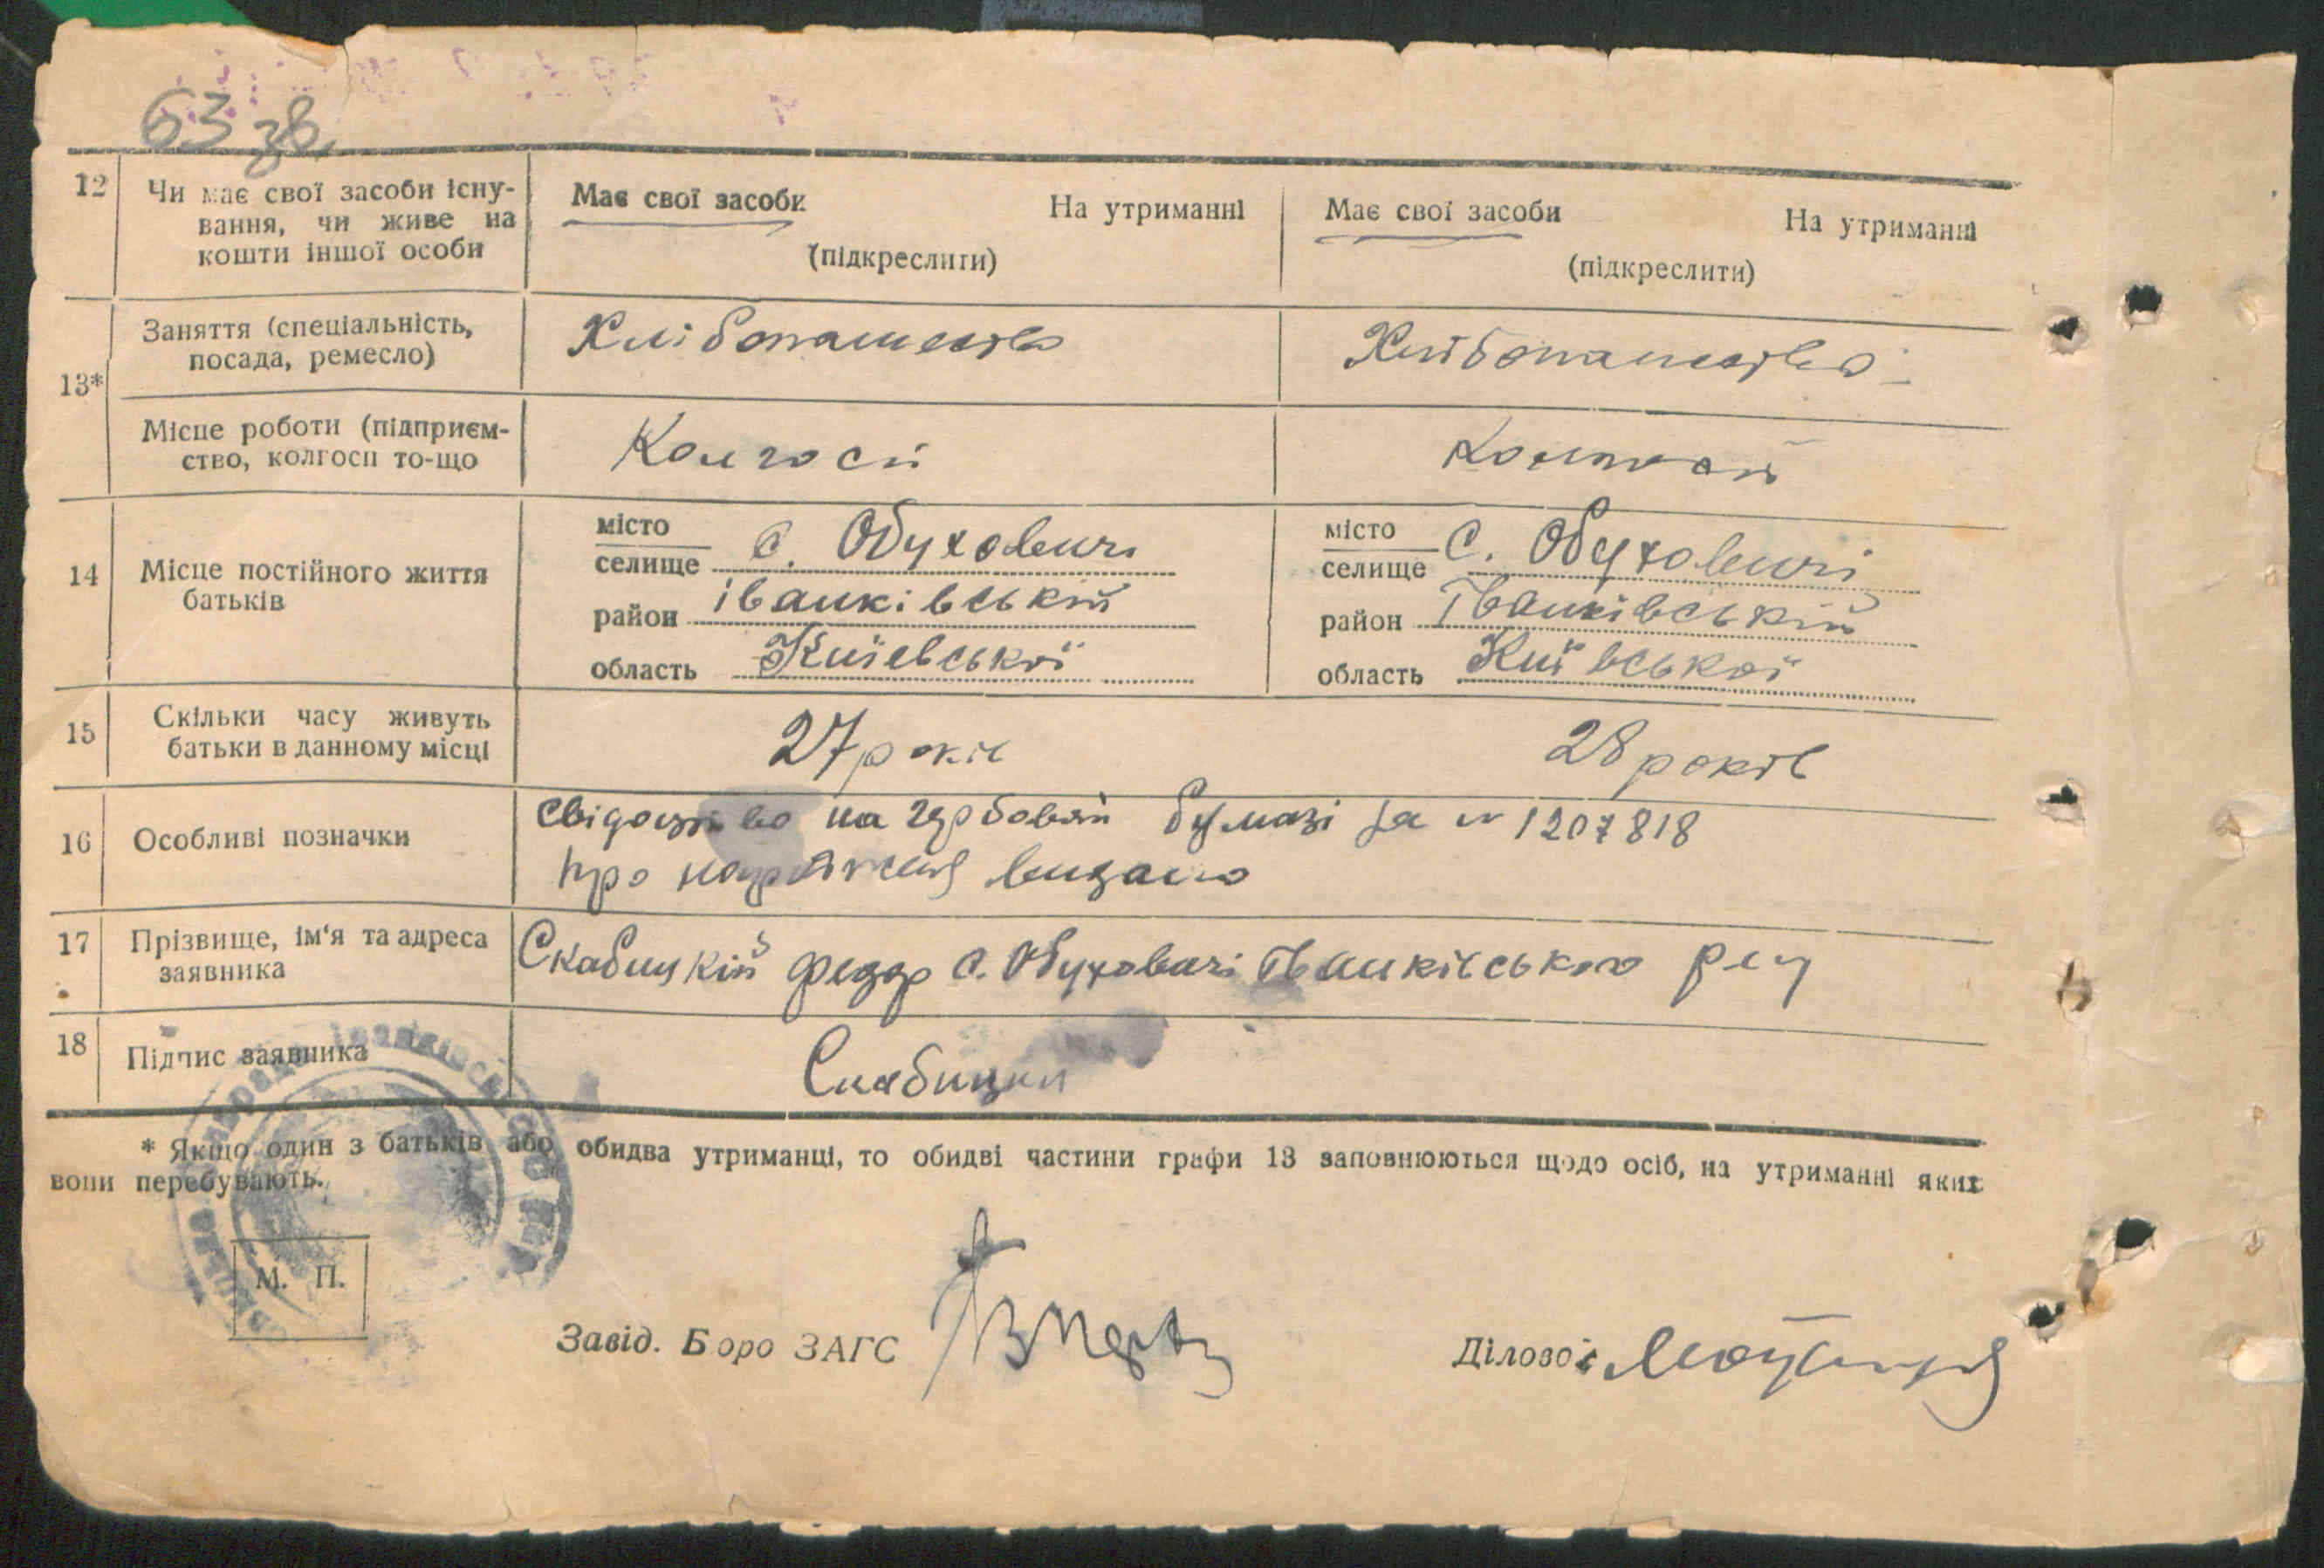 63 зв.
12 Чи має свої засоби існу- Має свої засоби На утриманні Має свої засоби На утриманні
вання, чи живе на
кошти іншої особи (підкреслити) (підкреслити)
13* Заняття (спеціальність, Хліборобство Хліборобство
посада, ремесло)
Місце роботи (підприєм- Колгосп Колгосп
ство, колгосп то-що
14 Місце постійного життя
батьків
місто
селище с. Обуховичі
район Іванківській
область Киівської
місто
селище С. Обуховичі
район Іванківській
область Київської
15 Скільки часу живуть 27 років 28 років
батьки в данному місці
16 Особливі позначки свідоцтво на гербовій бумазі за № 1207818
про народження видано
17 Прізвище, ім'я та адреса Скабицкій Федор с. Обуховичі Іванківського р-ну
заявника
18 Підпис заявника Скабицкий
* Якщо один з батьків або обидва утриманці, то обидві частини графи 13 заповнюються щодо осіб, на утриманні яких
вони перебувають.
М. П.
Завід. Бюро ЗАГС Діловод